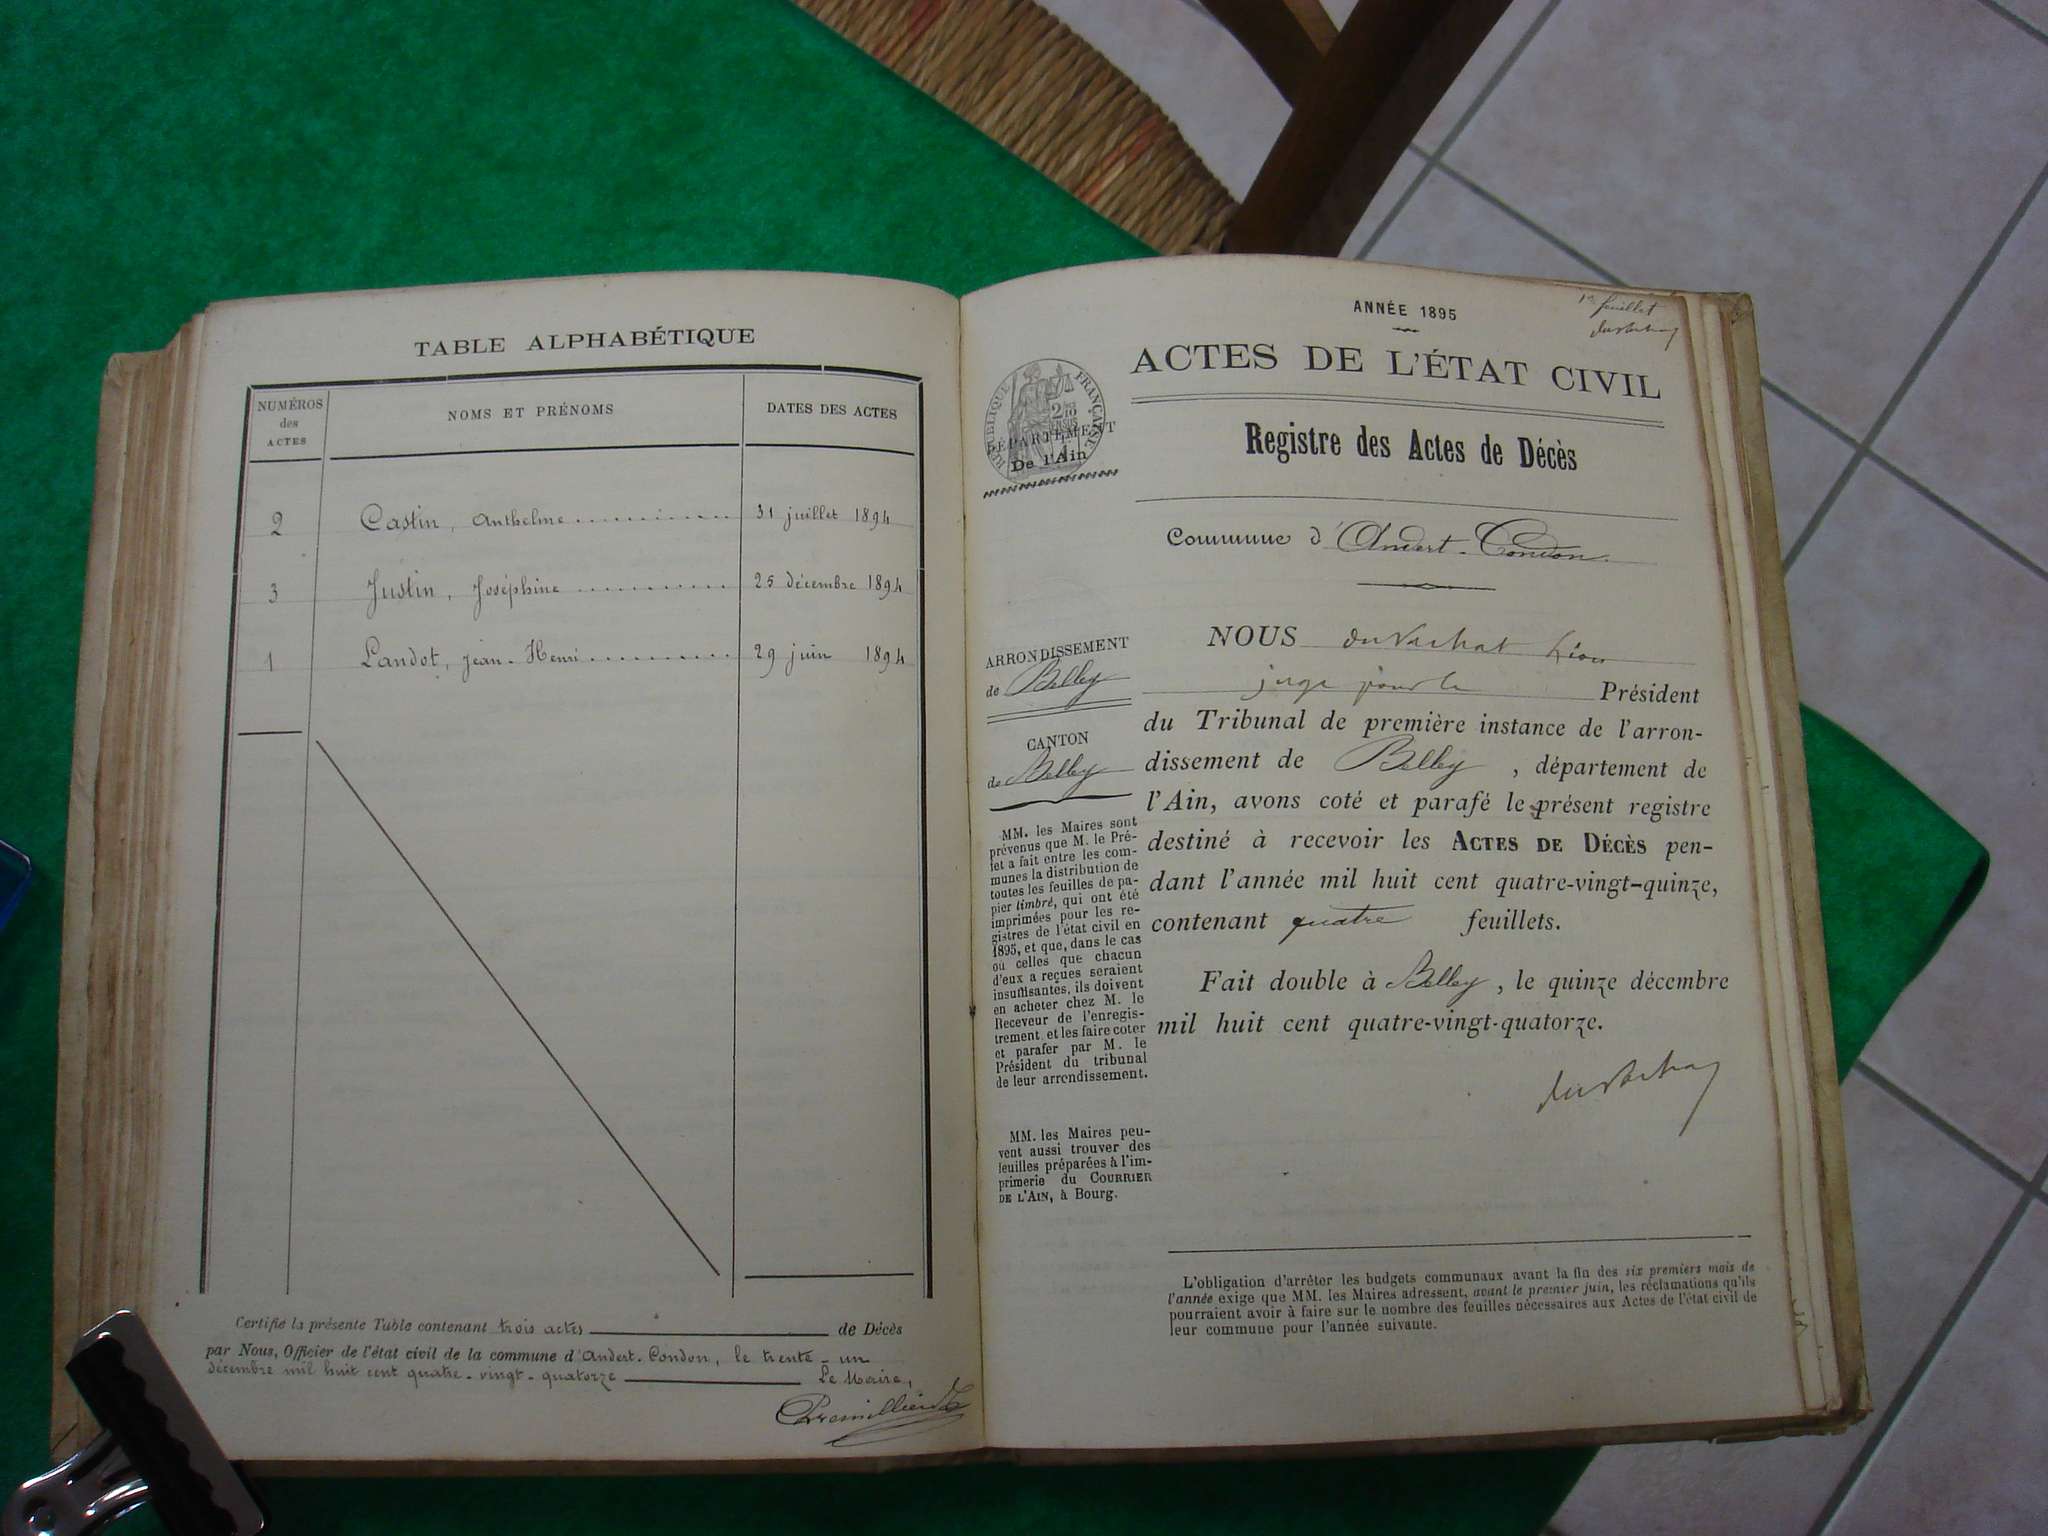 TABLE ALPHABÉTIQUE
NUMÉROS
des
ACTES
NOMS ET PRÉNOMS
DATES DES ACTES
2 Castin, Anthelme 31 juillet 1894
3 Justin, Joséphine 25 décembre 1894
1 Landot, Jean-Henri 29 juin 1894
Certifié la présente Table contenant trois actes de Décès
par Nous, Officier de l'état civil de la commune d'Andert-Condon, le trente-un
décembre mil huit cent quatre-vingt-quatorze Le Maire,
1er feuillet
ANNÉE 1895
ACTES DE L'ÉTAT CIVIL
RÉPUBLIQUE FRANÇAISE
2/10
DÉPARTEMENT
De l'Ain
Registre des Actes de Décès
Commune d'Andert-Condon
ARRONDISSEMENT
de Belley
CANTON
de Belley
MM. les Maires sont
prévenus que M. le Pré-
fet a fait entre les com-
munes la distribution de
toutes les feuilles de pa-
pier timbré, qui ont été
imprimées pour les re-
gistres de l'état civil en
1895, et que, dans le cas
où celles que chacun
d'eux a reçues seraient
insuffisantes, ils doivent
en acheter chez M. le
Receveur de l'enregis-
trement et les faire coter
et parafer par M. le
Président du tribunal
de leur arrondissement.
MM. les Maires peu-
vent aussi trouver des
feuilles préparées à l'im-
primerie du COURRIER
DE L'AIN, à Bourg.
NOUS du Vachat Léon
juge pour le Président
du Tribunal de première instance de l'arron-
dissement de Belley, département de
l'Ain, avons coté et parafé le présent registre
destiné à recevoir les ACTES DE DÉCÈS pen-
dant l'année mil huit cent quatre-vingt-quinze,
contenant quatre feuillets.
Fait double à Belley, le quinze décembre
mil huit cent quatre-vingt-quatorze.
L'obligation d'arrêter les budgets communaux avant la fin des six premiers mois de
l'année exige que MM. les Maires adressent, avant le premier juin, les réclamations qu'ils
pourraient avoir à faire sur le nombre des feuilles nécessaires aux Actes de l'état civil de
leur commune pour l'année suivante.